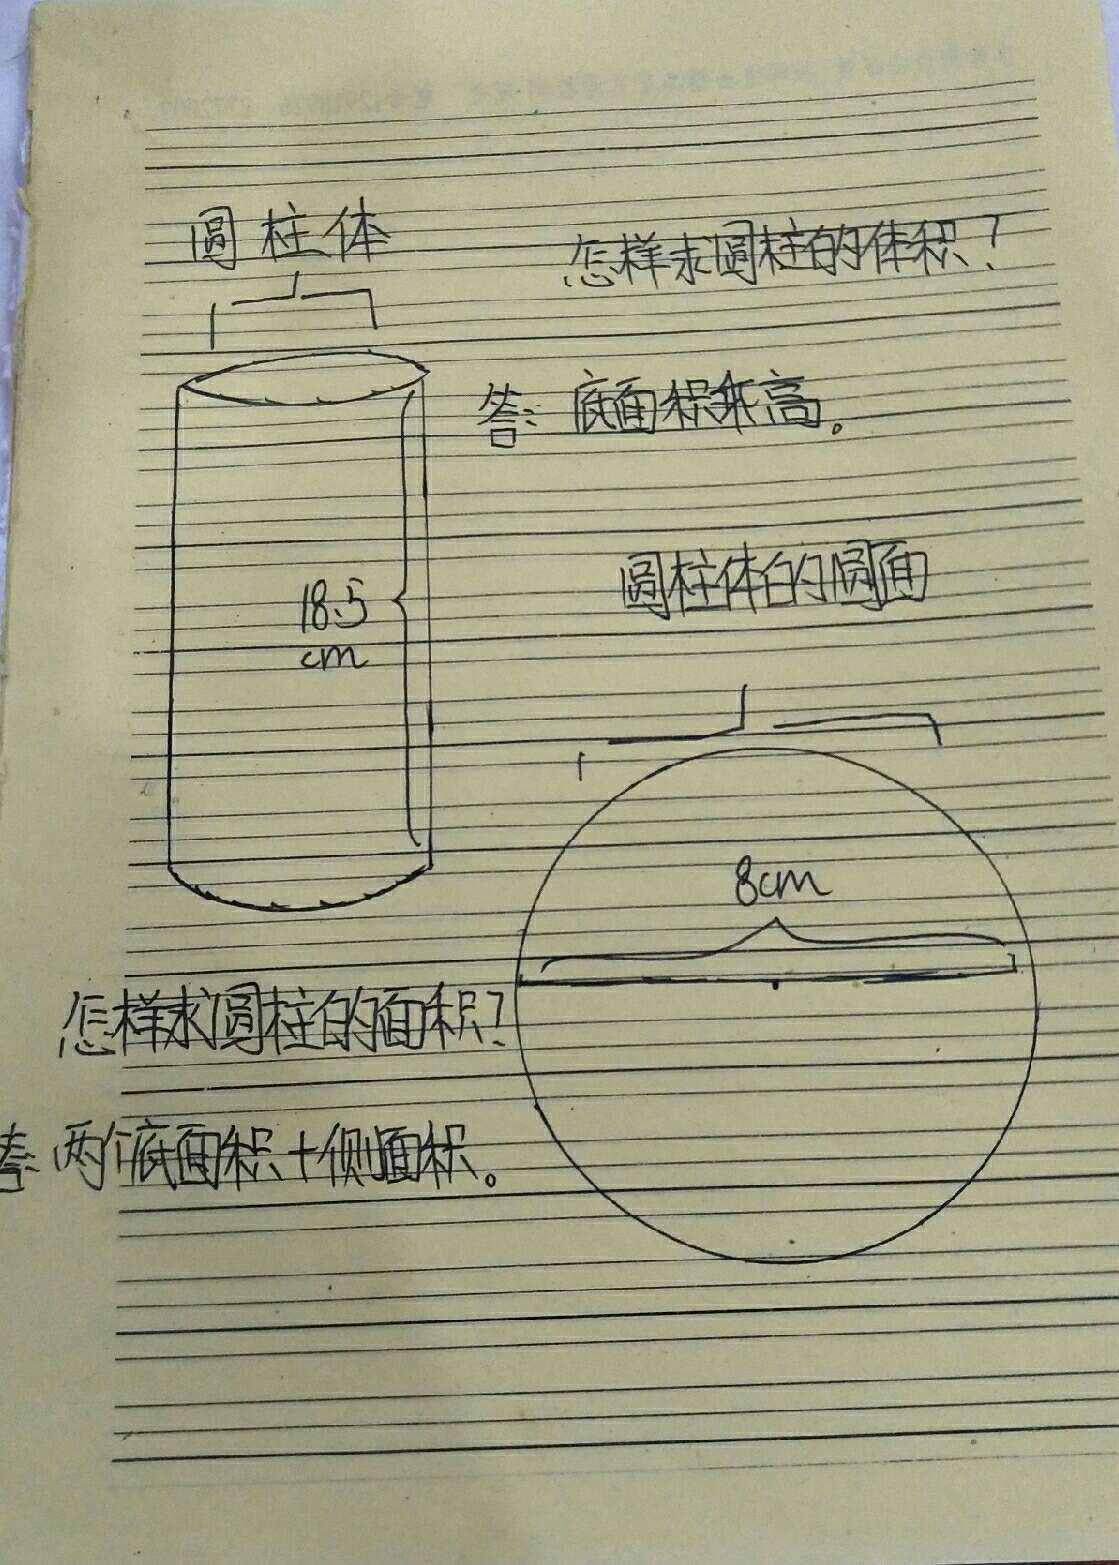 圆柱体
怎样求圆柱的体积?
答: 底面积乘高。
18.5
cm
圆柱体的圆面
8cm
怎样求圆柱的面积?
答: 两个底面积+侧面积。